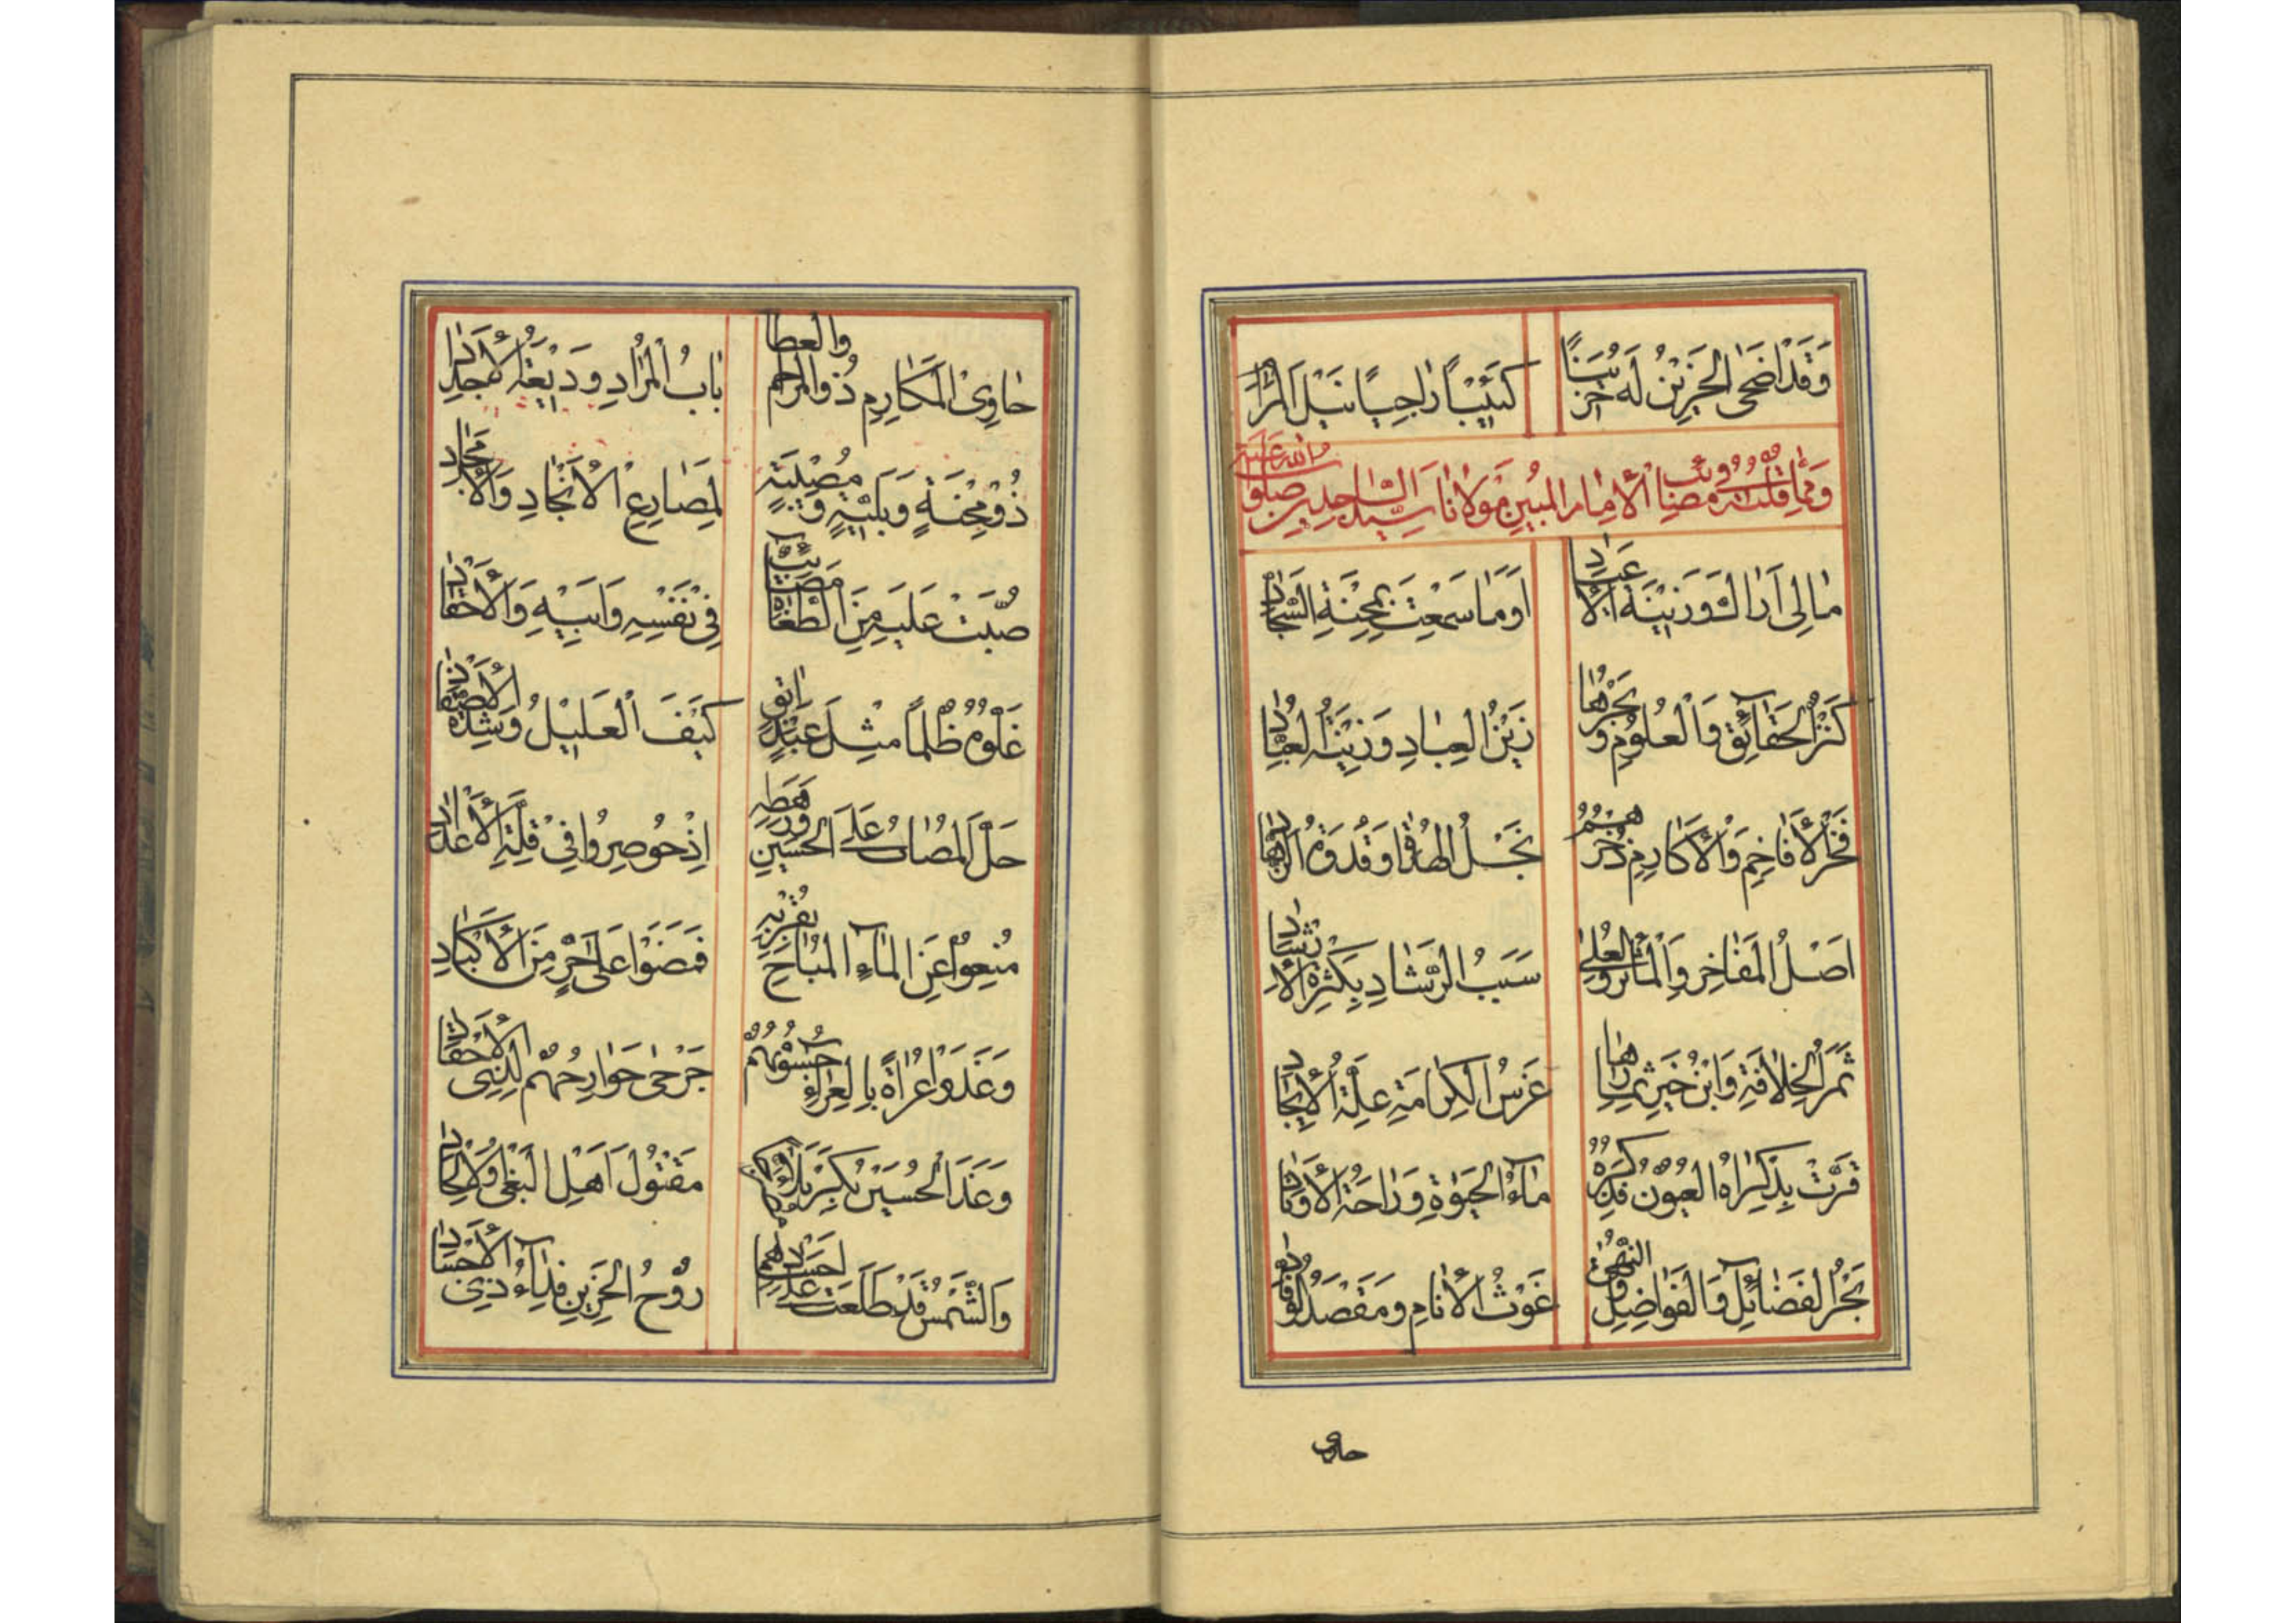 وَقَدْ اَضْحَى الْحَزِيْنُ لَهُ حَزِيْنًا كَئِيْبًا رَاجِيًا نَيْلَ
وَمِمَّا قُلْتُهُ فِيْ مَصَائِبِ الْاِمَامِ الْمُبِيْنِ مَوْلَانَا سَيِّدِ السَّاجِدِيْنَ صَلَوَاتُ اللهِ عَلَيْهِ
مَالِى اَرَاكَ وَزِيْنَةَ اَوَمَا سَمِعْتَ بِمِحْنَةِ السَّجَّادِ
كَنْزُ الْحَقَائِقِ وَالْعُلُوْمِ وَبَحْرُهَا زَيْنُ الْعِبَادِ وَزِيْنَةُ الْعُبَّادِ
فَخْرُ الْاَفَاخِمِ وَالْاَكَارِمِ ذُخْرُهُمْ نَجْلُ الْهُدَاةِ وَقُدْوَةُ الزُّهَّادِ
اَصْلُ الْمَفَاخِرِ وَالْمَآثِرِ وَالْعُلٰى سَبَبُ الرَّشَادِ بِكَثْرَةِ الْاِرْشَادِ
ثَمَرُ الْخِلَافَةِ وَابْنُ خَيْرِ ثِمَارِهَا غَرْسُ الْكِرَامَةِ عِلَّةُ الْاِيْجَادِ
قَرَّتْ بِذِكْرَاهُ الْعُيُوْنُ فَذِكْرُهُ مَاءُ الْحَيٰوةِ وَرَاحَةُ
بَحْرُ الْفَضَائِلِ وَالْفَوَاضِلِ وَالنُّهٰى غَوْثُ الْاَنَامِ وَمَقْصَدُ الْوُفَّادِ
حاوى
حَاوِى الْمَكَارِمِ ذُو الْمَرَاحِمِ وَالْعَطَا بَابُ الْمُرَادِ وَدِيْعَةُ الْاَمْجَادِ
ذُوْ مِحْنَةٍ وَبَلِيَّةٍ وَمُصِيْبَةٍ لِمَصَارِعِ الْاَنْجَادِ وَالْاَمْجَادِ
صُبَّتْ عَلَيْهِ مِنَ الطُّغَاةِ مَصَائِبٌ فِيْ نَفْسِهِ وَاَبِيْهِ وَالْاَحْفَادِ
غَلُّوْهُ ظُلْمًا مِثْلَ عَبْدٍ اٰبِقٍ كَيْفَ الْعَلِيْلُ وَشِدَّةُ الْاَصْفَادِ
حَلَّ الْمُصَابُ عَلَى الْحُسَيْنِ وَرَهْطِهِ اِذْ حُوْصِرُوْا فِيْ قِلَّةِ الْاَعْدَادِ
مُنِعُوْا عَنِ الْمَاءِ الْمُبَاحِ بِقُرْبِهِ فَمَضَوْا عَلٰى حَرٍّ مِنَ الْاَكْبَادِ
وَغَدَوْا عُرَاةً بِالْعَرَاءِ جُسُوْمُهُمْ جَرْحٰى جَوَارِحُهُمْ لِذِى الْاَحْقَادِ
وَغَدَا الْحُسَيْنُ بِكَرْبَلَا مَقْتُوْلَ اَهْلِ الْبَغْىِ وَالْاِلْحَادِ
وَالشَّمْسُ قَدْ طَلَعَتْ عَلٰى اَجْسَادِهِمْ رُوْحُ الْحَزِيْنِ فِدَاءُ ذِى الْاَجْسَادِ